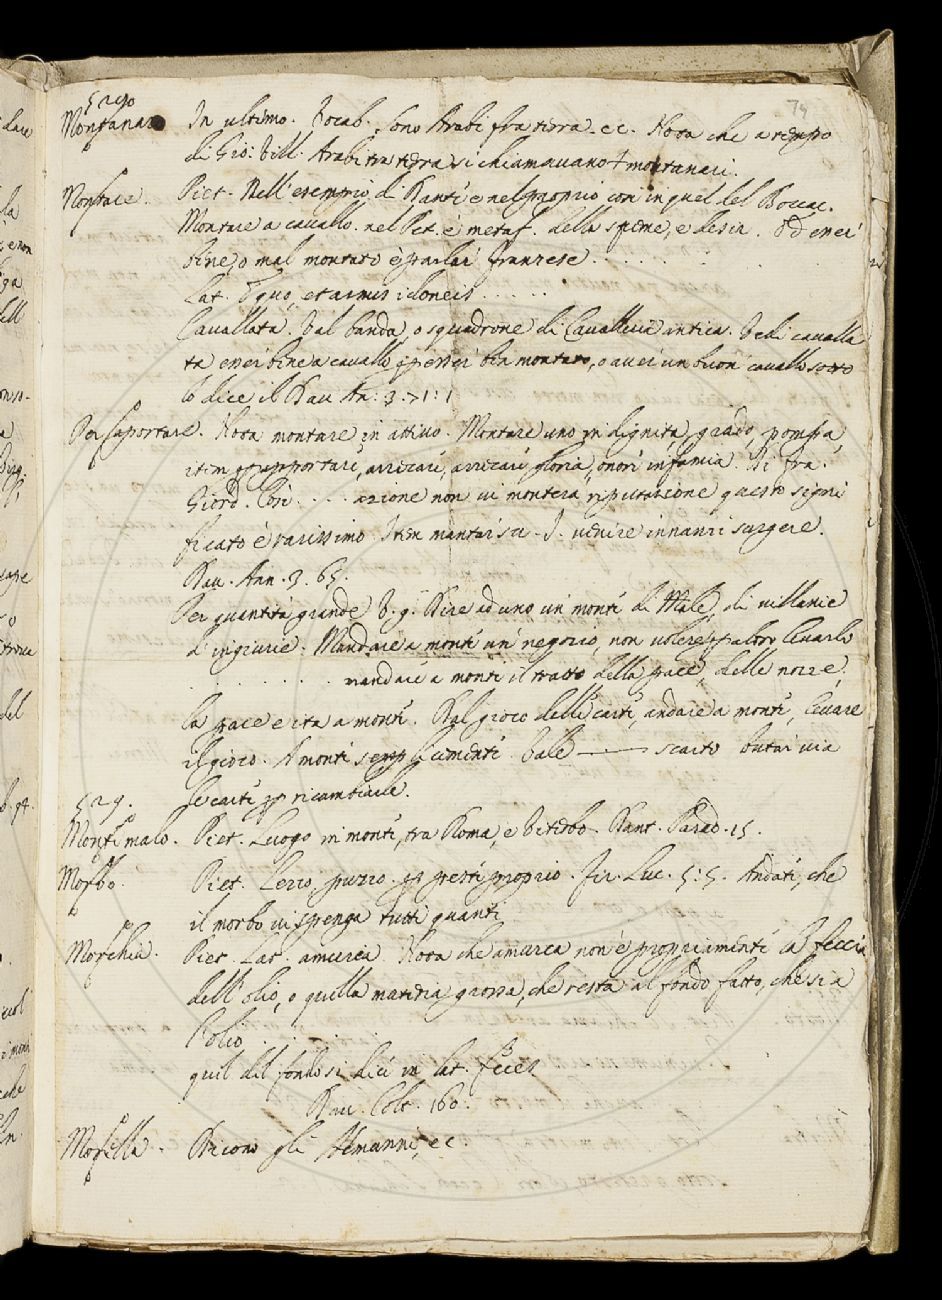 74
5290
Montanaro In ultimo. Vocab. sono Arabi fra terra. ec. Nota che a tempo
di Gio: Vill. Arabi tra terra si chiamavano montanari.
Montare. Piet. Nell'esempio di Dante e nel proprio con in quel del Boccac.
Montare a cavallo. nel Pet. è metaf. della speme, e desir. Od esser
bene, o mal montato è parlar franzese . . . . . .
Lat. Equo, et armis idoneis . . . . .
Cavallata. Val banda, o squadrone di Cavalleria antica. Vedi cavalla
ta esser bene a cavallo per esser ben montato, o aver un buon cavallo sotto
lo dice il Dav. An: 3. 71: 1
Per sapportare. Nota montare in attivo. Montare uno in dignità, grado, pompa,
item per apportare, arrecare, gloria, onore infamia. Di fra.
Giord. Così . . . . azione non vi montera riputazione questo signi
ficato è rarissimo Item montar su. I. venire innanzi surgere.
Dav. Ann. 3. 65.
Per quantità grande V. g. Dire ad uno un monte di Male, di villanie
d'ingiurie. Mandare a monte un negozio, non volere per altro levarlo
. . . . . . . . mandare a monte il tratto della pace, delle nozze,
la pace e ita a monte. Nel gioco delle carte, andare a monte, levare
il gioco. A monte semplicemente Vale —— scarto butar via
le carte per ricambiarle.
529.
Montemalo. Piet. Luogo in monte, tra Roma, e Viterbo. Dant. Parad. 15.
Morbo. Piet. Lezzo, puzzo. per peste proprio. Fir. Luc. 5: 5. Andate, che
il morbo vi spenga tutti quanti
Morchia. Piet. Lat. amurca. Nota che amurca non è propriamente la feccia
dell'olio, o quella materia grossa, che resta al fondo fatto, che si a
l'olio . . .
quel del fondo si dice in lat. feces
Dav. Colt. 160.
Morella. Dicono gli Alemanni, ec